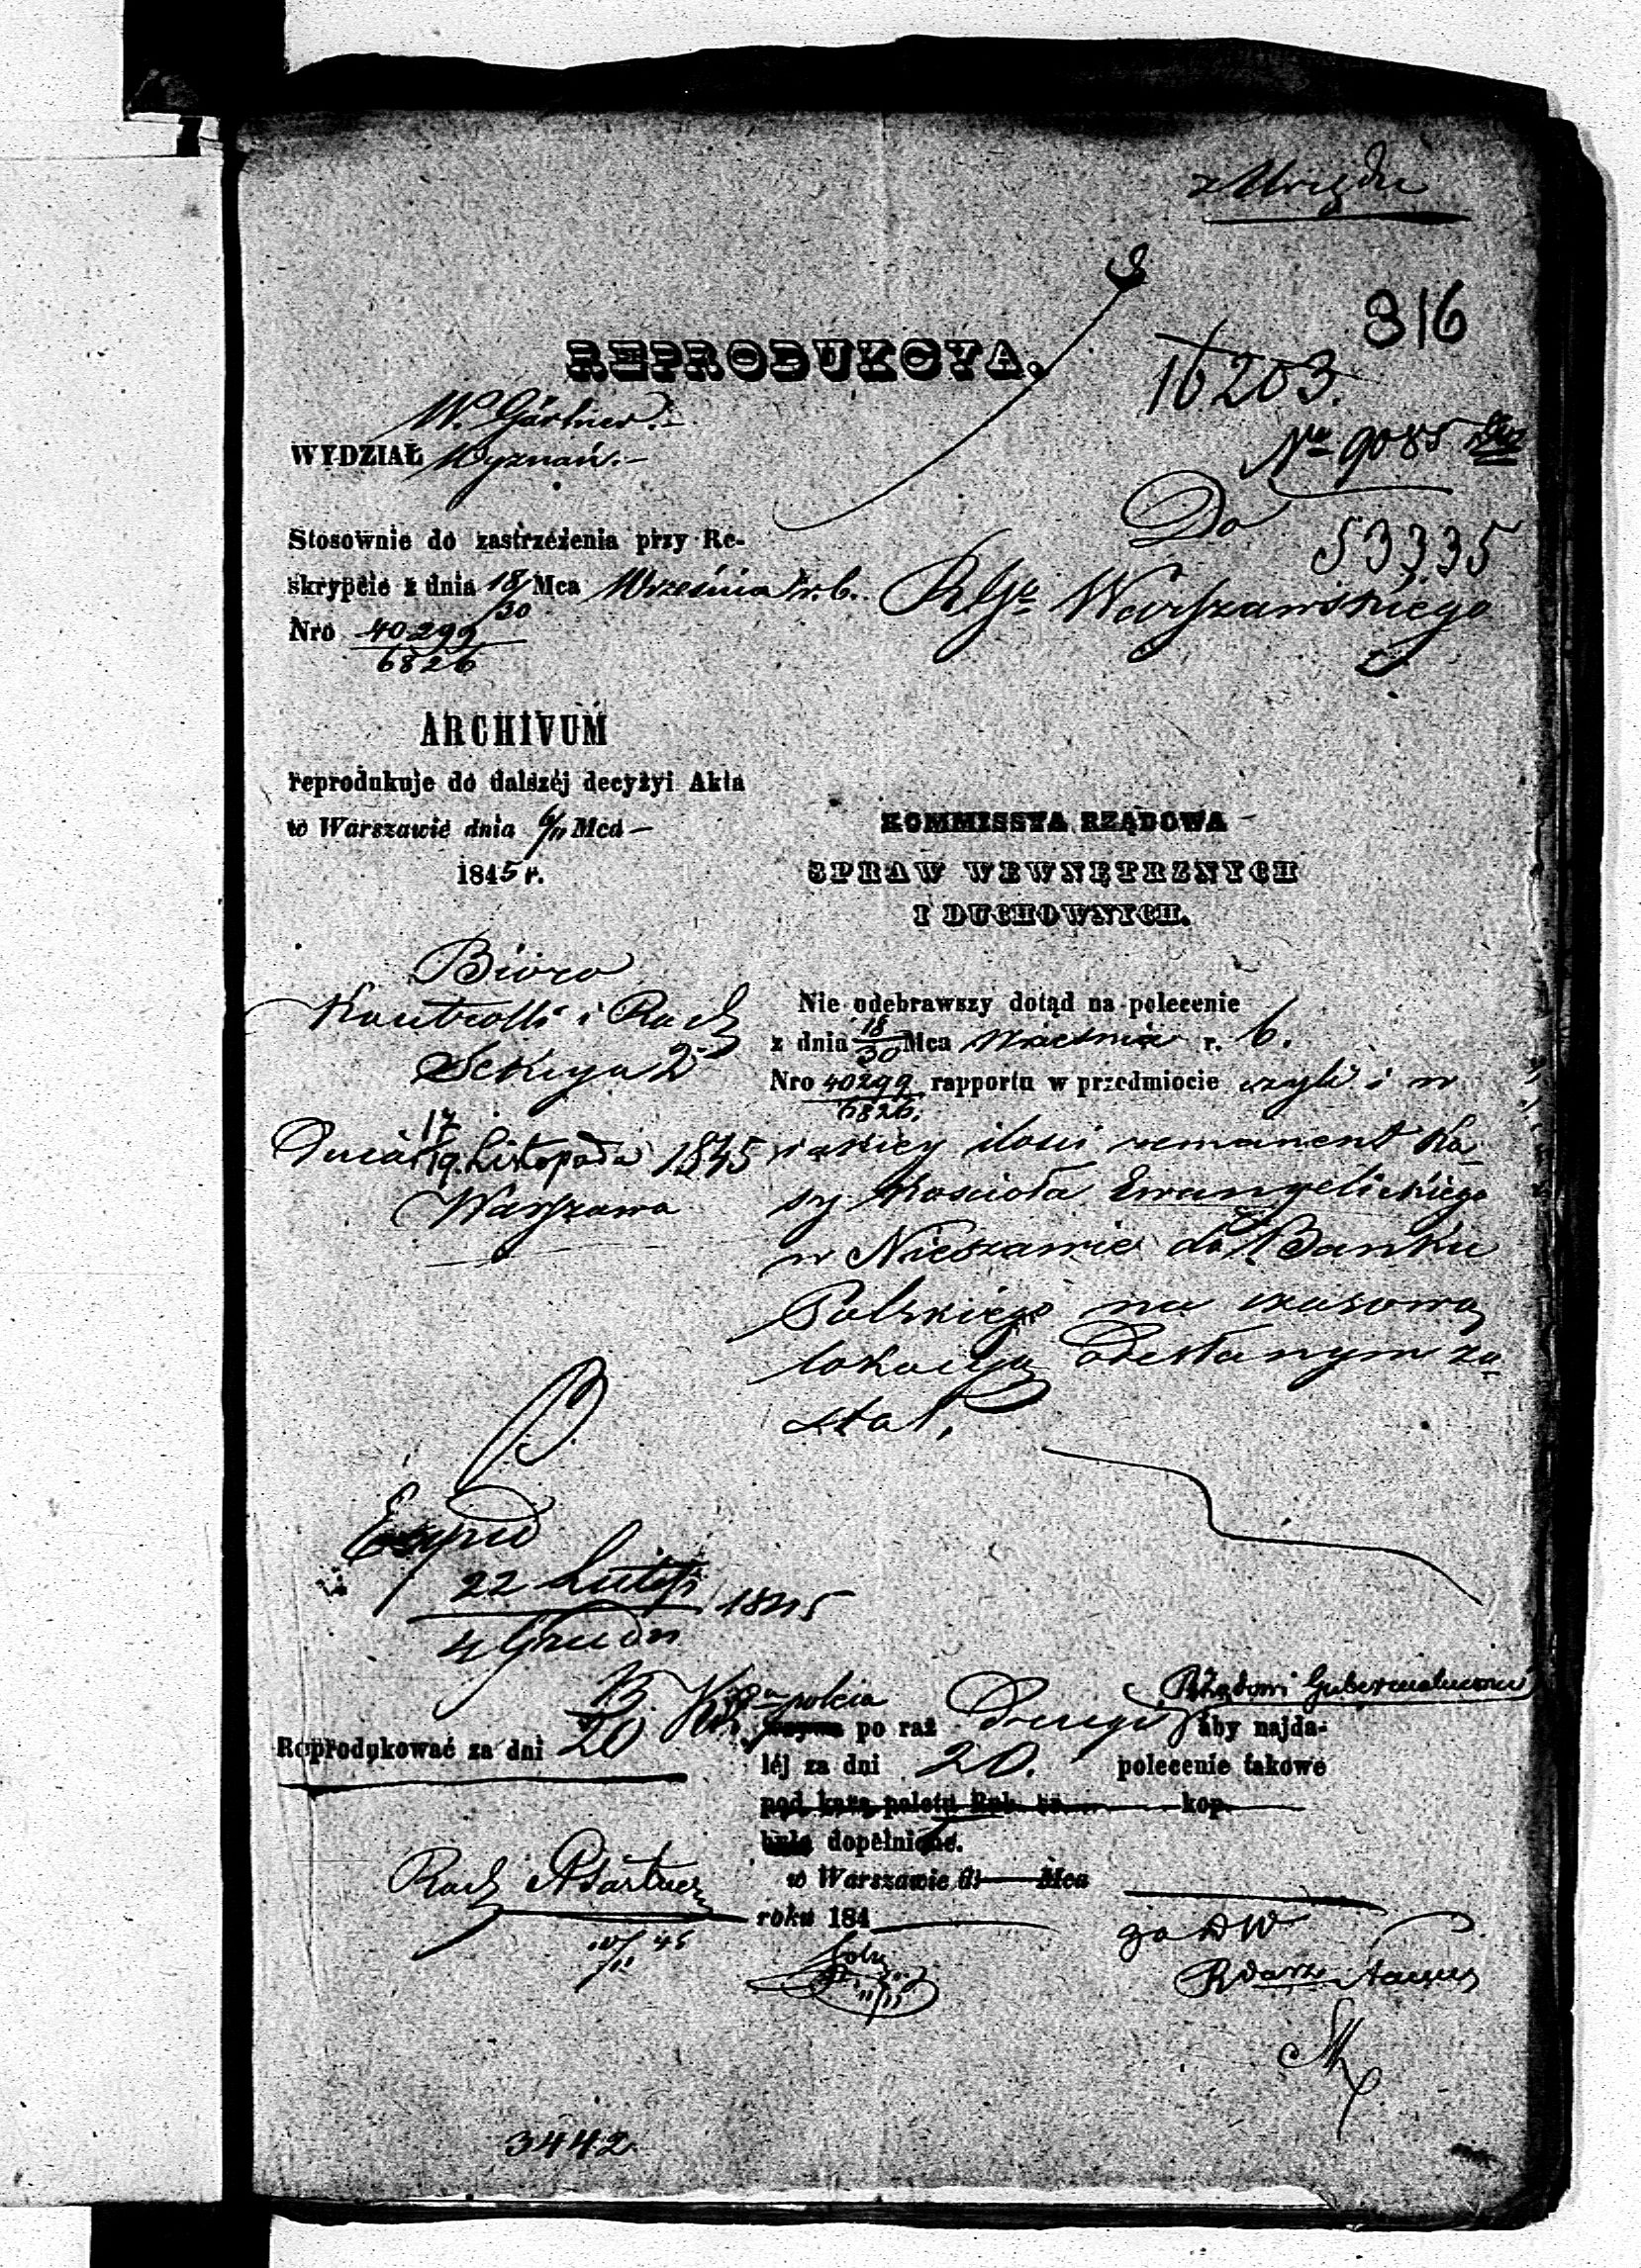 z Urzędu
316
REPRODUKCYA.
16203.
W. Gärtner.
WYDZIAŁ Wyznań.
No 9085
Do
53335
Stosownie do zastrzeżenia przy Re-
skrypcie z dnia 18/30 Mca Września r. b.
Nro 40299/6826
RGo Warszawskiego
ARCHIVUM
reprodukuje do dalszéj decyzyi Akta
w Warszawie dnia 6/11 Mca
1845 r.
KOMMISSYA RZĄDOWA
SPRAW WEWNĘTRZNYCH
I DUCHOWNYCH.
Bióro
Kontrolli i Rach
Sekcya 2
Dnia 17/19 Listopada 1845
Warszawa
Nie odebrawszy dotąd na polecenie
z dnia 18/30 Mca Września r. b.
Nro 40299/6826 rapportu w przedmiocie czyli i w
jakiey ilości remanent Ka-
sy Kościoła Ewangelickiego
w Nieszawie do Banku
Polskiego na czasową
lokacyą odesłanym zo-
stał.
Exped
22 Listop / 4 Grudn 1845
Reprodukować za dni 20
KR poleca Rządowi Gubernialnemu
wzywa po raz Drugi aby najda-
léj za dni 20. polecenie takowe
pod karą poletu Rub. sr. kop.
było dopełnione.
w Warszawie d. Mca
roku 184
Rach Gärtner
10/11 45
11/11
za DW
3442